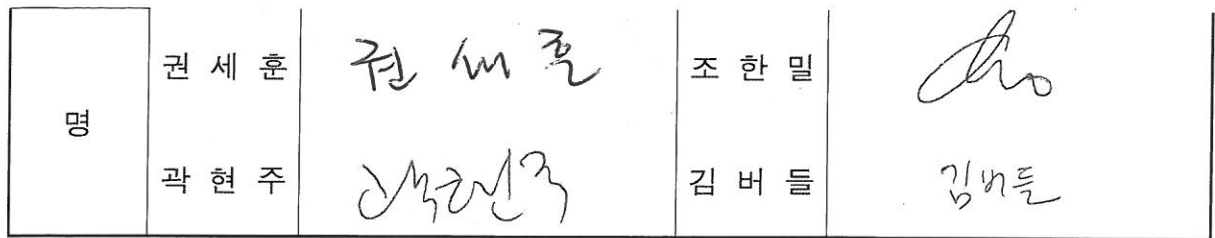 권 세 훈 권 세 훈 조 한 밀 Cho
명
곽 현 주 곽현주 김 버 들 김버들